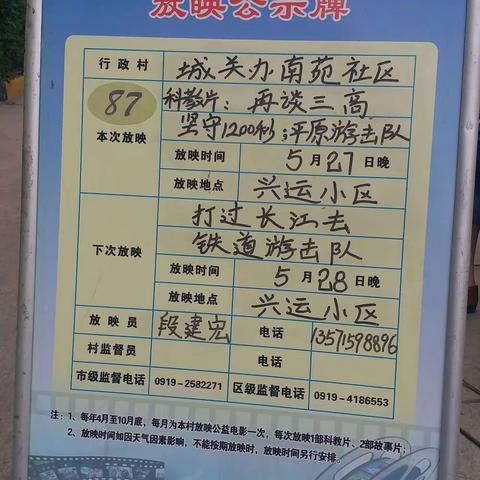 放映公示牌
行政村 城关办南苑社区
87 科教片：再谈三高
本次放映 坚守1200秒；平原游击队
放映时间 5月27日晚
放映地点 兴运小区
打过长江去
下次放映 铁道游击队
放映时间 5月28日晚
放映地点 兴运小区
放映员 段建宏 电话 13571598896
村监督员 电话
市级监督电话 0919-2582271 区级监督电话 0919-4186553
注：1、每年4月至10月底，每月为本村放映公益电影一次，每次放映1部科教片、2部故事片；
2、放映时间如因天气因素影响，不能按期放映时，放映时间另行安排。